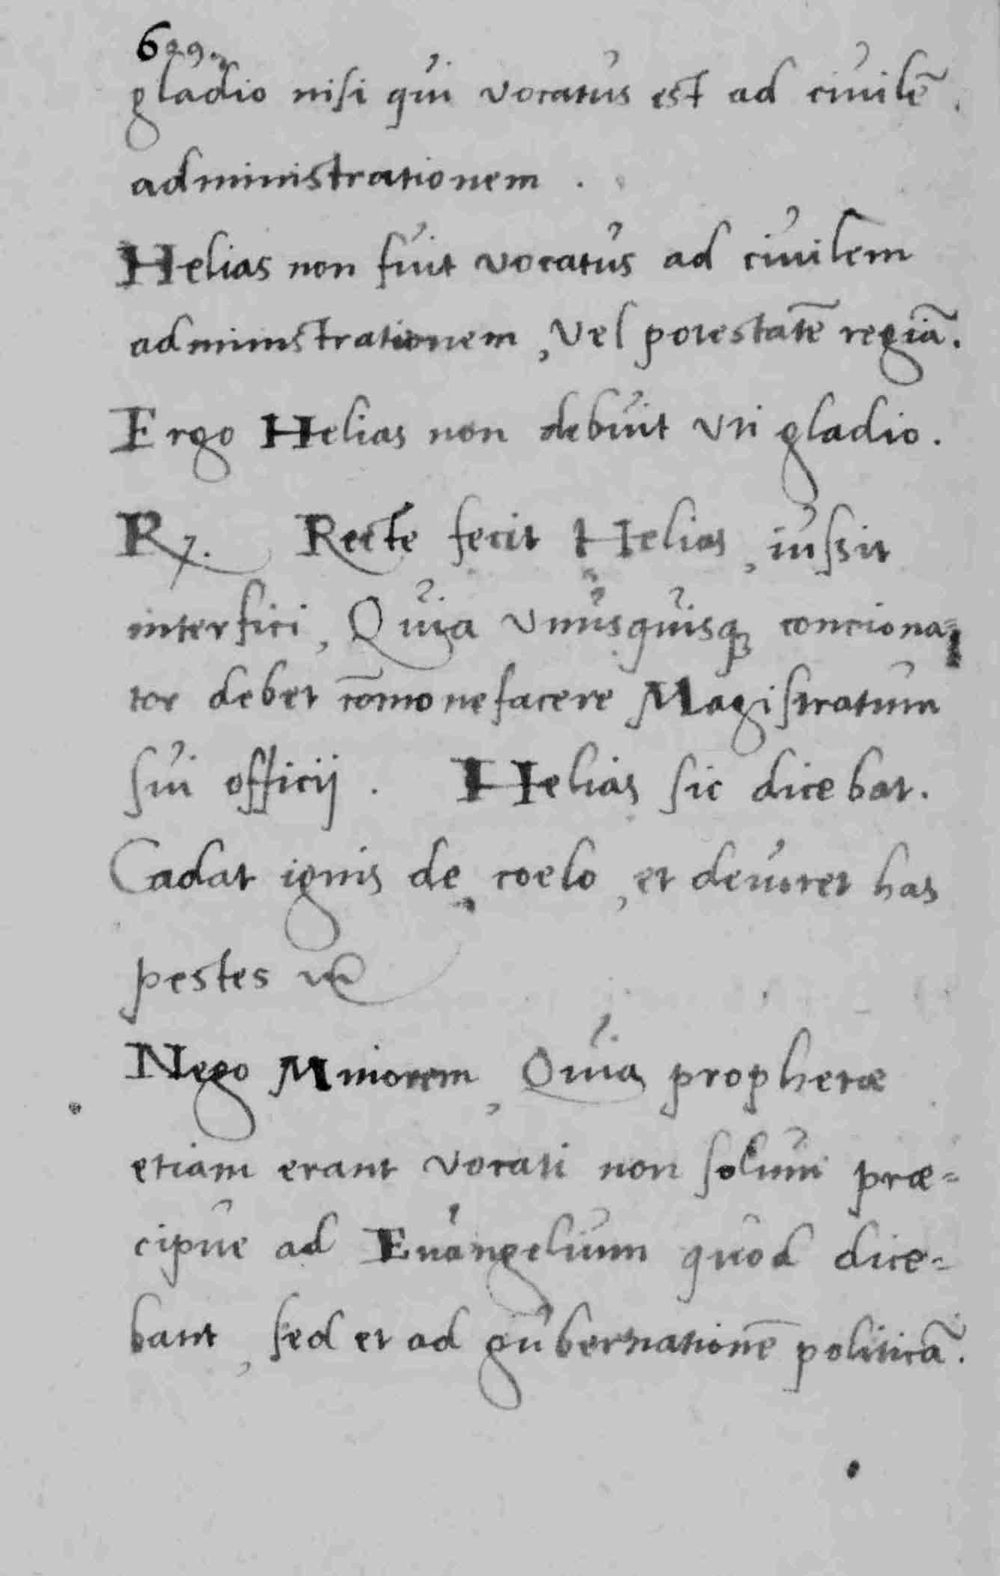 629.
gladio nisi qui vocatus est ad ciuilē.
administrationem.
Helias non fuit vocatus ad ciuilem
administrationem, vel potestatē regiā.
Ergo Helias non debuit uti gladio.
R/. Recte fecit Helias, iussit
interfici, Quia unusquisq; conciona=
tor debet cōmonefacere Magistratum
sui officij. Helias sic dicebat.
Cadat ignis de coelo, et deuoret has
pestes
Nego Minorem, Quia prophetæ
etiam erant vocati non solum præ=
cipue ad Euangelium quod dice=
bant, sed et ad gubernationē politicā.